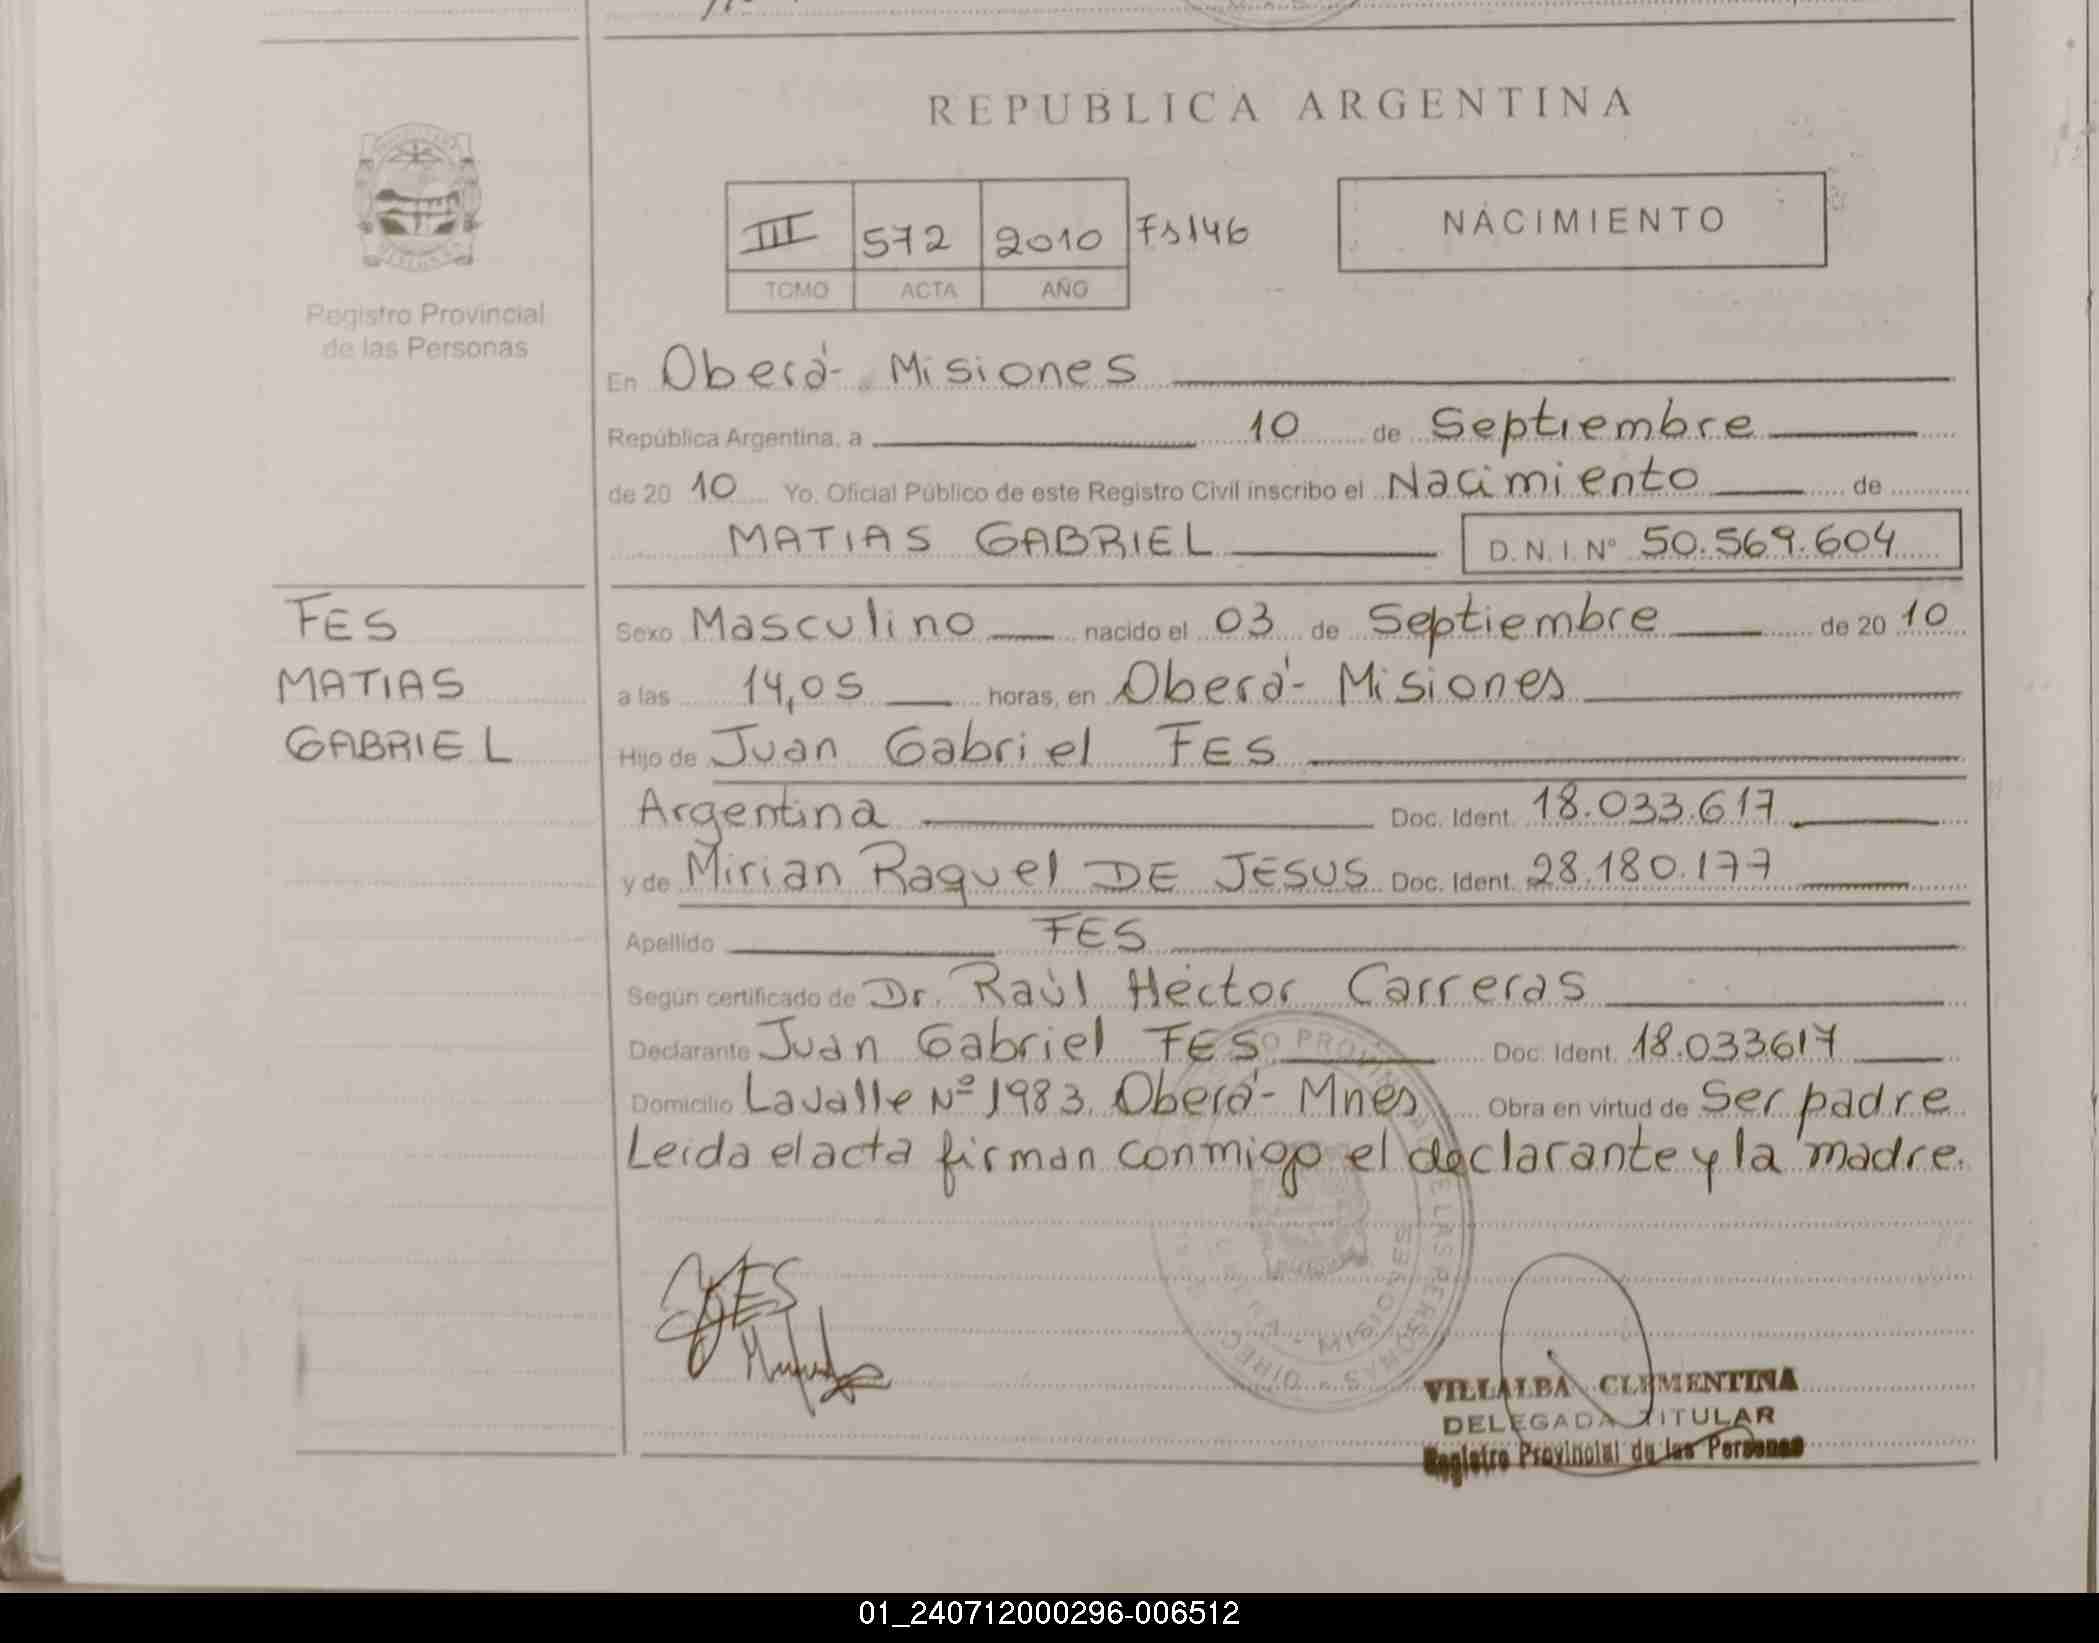 REPUBLICA ARGENTINA
III 572 2010 Fs146
TOMO ACTA AÑO
NACIMIENTO
Registro Provincial
de las Personas
En Oberá - Misiones
República Argentina, a 10 de Septiembre
de 20 10 Yo, Oficial Público de este Registro Civil inscribo el Nacimiento de
MATIAS GABRIEL D.N.I. Nº 50.569.604
FES
MATIAS
GABRIEL
Sexo Masculino nacido el 03 de Septiembre de 20 10
a las 14,05 horas, en Oberá - Misiones
Hijo de Juan Gabriel FES
Argentina Doc. Ident. 18.033.617
y de Mirian Raquel DE JESUS Doc. Ident. 28.180.177
Apellido FES
Según certificado de Dr. Raúl Héctor Carreras
Declarante Juan Gabriel FES Doc. Ident. 18.033617
Domicilio Lavalle Nº 1983. Oberá - Mnes Obra en virtud de Ser padre
Leida el acta firman conmigo el declarante y la madre.
FES
VILLALBA CLEMENTINA
DELEGADA TITULAR
Registro Provincial de las Personas
01_240712000296-006512